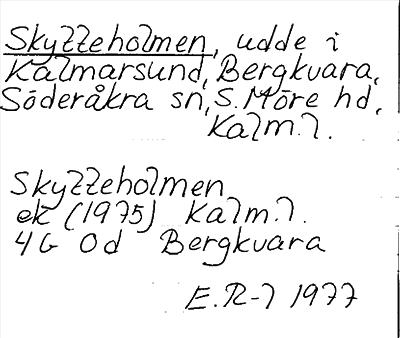 Skytteholmen, udde i
Kalmarsund, Bergkvara,
Söderåkra sn, S. Möre hd,
Kalm. l.
Skytteholmen
ek (1975) Kalm. l.
4G 0d Bergkvara
E.R-l 1977